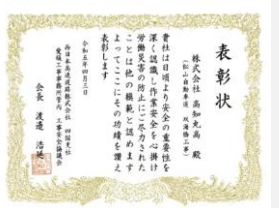 表彰状
株式会社 高知丸高 殿
(松山自動車道 双海橋工事)
貴社は日頃より安全の重要性を
深く認識し作業安全を心掛け
労働災害の防止にご尽力された
ことは他の模範と認めます
よってここにその功績を讃え
表彰します
令和五年四月三日
西日本高速道路株式会社 四国支社
愛媛工事事務所管内 工事安全協議会
会長 渡邉 浩延